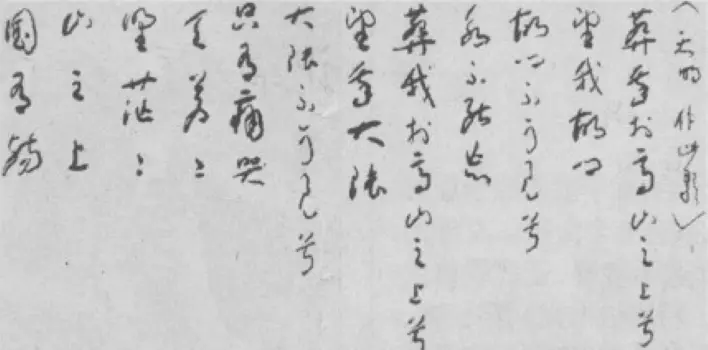 (天明作此歌)
葬我於高山之上兮
望我故鄉
故鄉不可見兮
永不能忘
葬我於高山之上兮
望我大陸
大陸不可見兮
只有痛哭
天蒼〻
野茫〻
山之上
國有殤